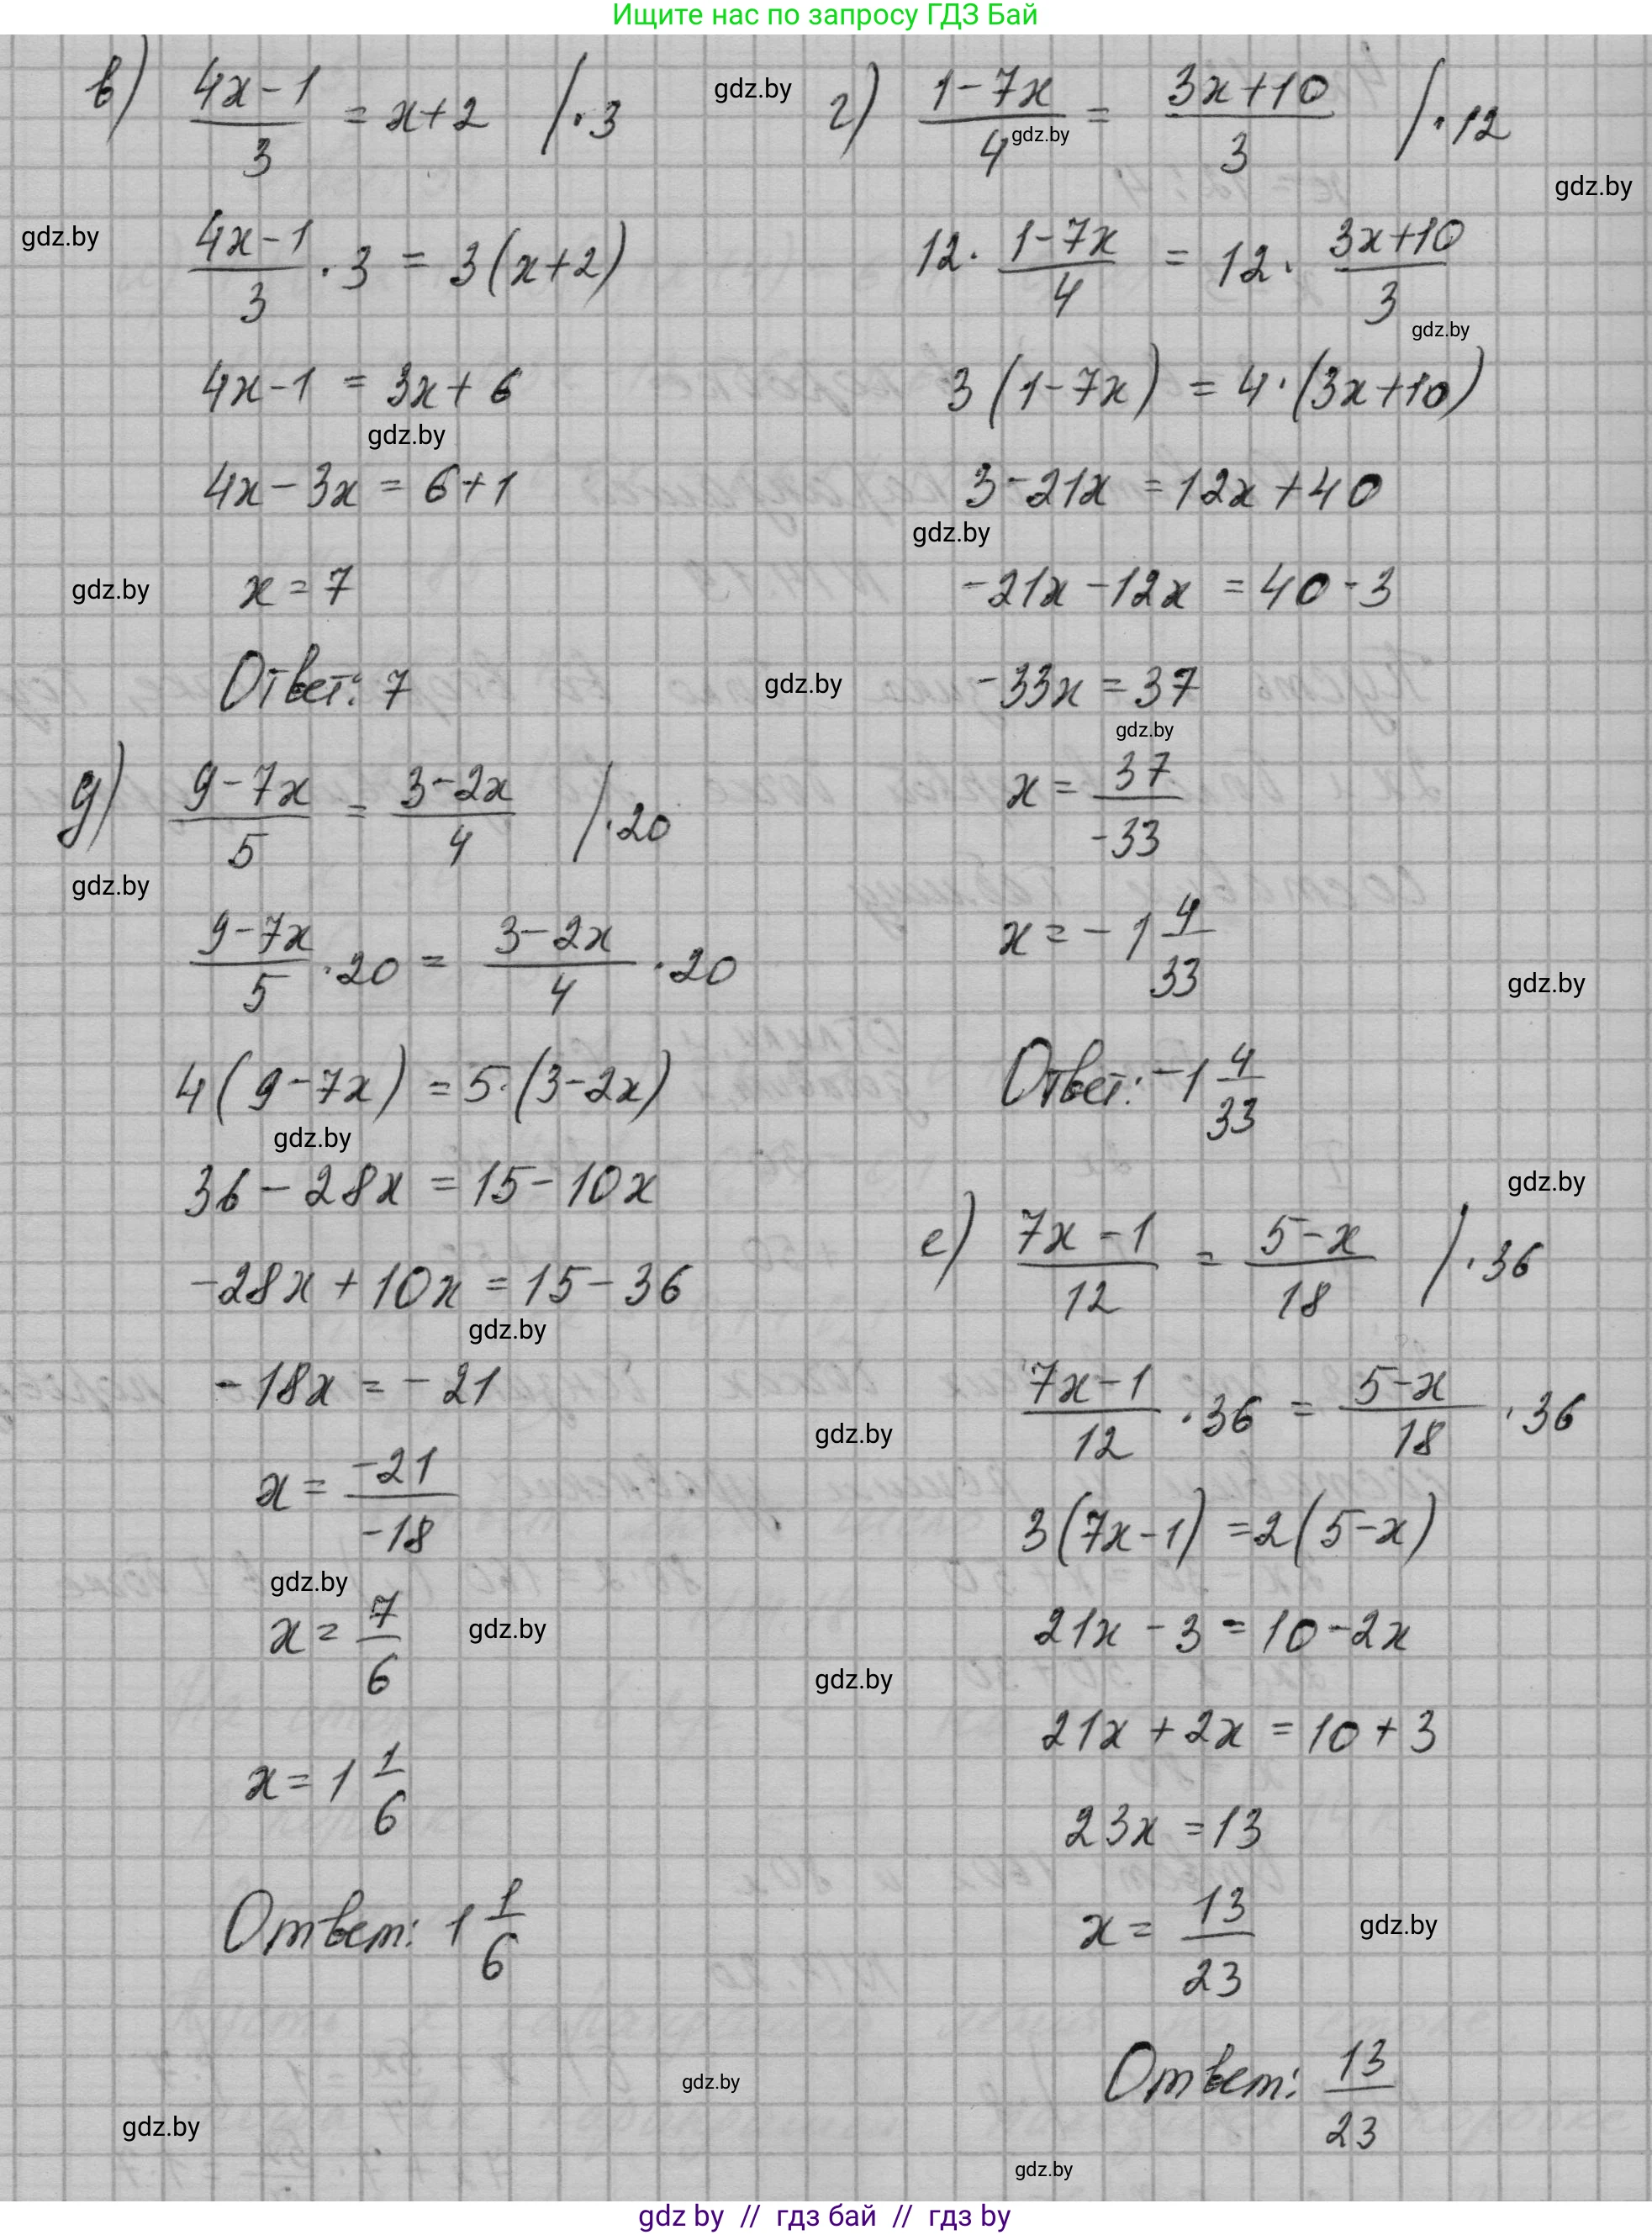 Ищите нас по запросу ГДЗ Бай
в) (4x-1)/3 = x+2 /·3
gdz.by
(4x-1)/3 · 3 = 3(x+2)
4x-1 = 3x+6
gdz.by
4x-3x = 6+1
gdz.by
x = 7
Ответ: 7
gdz.by
г) (1-7x)/4 = (3x+10)/3 /·12
gdz.by
gdz.by
12· (1-7x)/4 = 12· (3x+10)/3
gdz.by
3(1-7x) = 4·(3x+10)
3-21x = 12x+40
gdz.by
-21x-12x = 40-3
gdz.by
-33x = 37
gdz.by
x = 37/-33
x = -1 4/33
gdz.by
Ответ: -1 4/33
gdz.by
д) (9-7x)/5 = (3-2x)/4 /·20
gdz.by
(9-7x)/5 ·20 = (3-2x)/4 ·20
4(9-7x) = 5·(3-2x)
gdz.by
36-28x = 15-10x
-28x+10x = 15-36
gdz.by
-18x = -21
x = -21/-18
gdz.by
x = 7/6
gdz.by
x = 1 1/6
Ответ: 1 1/6
gdz.by
е) (7x-1)/12 = (5-x)/18 /·36
(7x-1)/12 ·36 = (5-x)/18 ·36
gdz.by
3(7x-1) = 2(5-x)
21x-3 = 10-2x
gdz.by
21x+2x = 10+3
23x = 13
x = 13/23
gdz.by
Ответ: 13/23
gdz.by
gdz.by
gdz by // гдз бай // гдз by